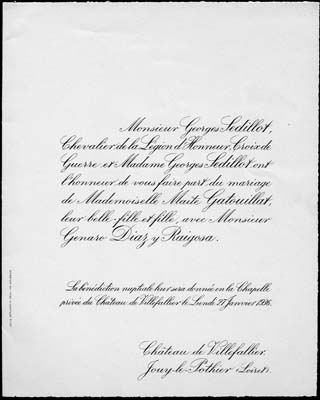 Monsieur Georges Sedillot,
Chevalier de la Légion d'Honneur, Croix de
Guerre et Madame Georges Sedillot ont
l'honneur de vous faire part du mariage
de Mademoiselle Maïté Gatouillat,
leur belle-fille et fille, avec Monsieur
Genaro Diaz y Raigosa.
La bénédiction nuptiale leur sera donnée en la Chapelle
privée du Château de Villefallier le Lundi 27 Janvier 1936.
Château de Villefallier.
Jouy-le-Pothier (Loiret).